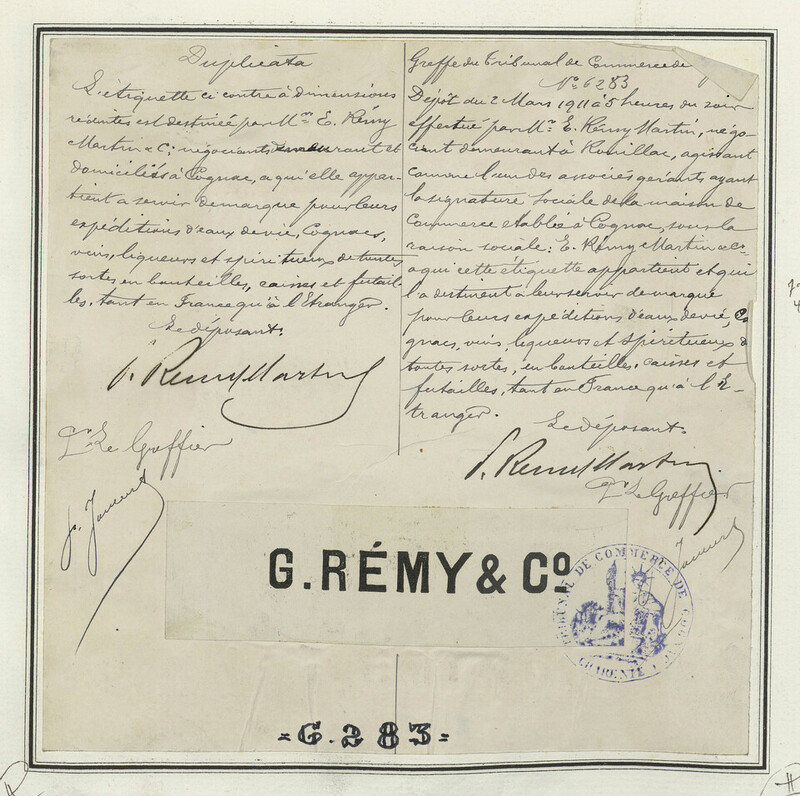 Duplicata
L'étiquette ci contre à dimensions
réduites est destinée par Mrs E. Rémy
Martin & Cie négociants demeurant et
domiciliés à Cognac, a qu'elle appar-
tient a servir de marque pour leurs
expéditions d'eaux de vie, Cognacs,
vins, liqueurs et spiritueux de toutes
sortes en bouteilles, caisses et futail-
les, tant en France qu'à l'Etranger.
Le déposant.
E. Remy Martin
Pr Le Greffier
Greffe du Tribunal de Commerce de
No 6283
Dépôt du 2 Mars 1911 à 5 heures du soir
effectué par Mr E. Rémy Martin, négo-
ciant demeurant à Rouillac, agissant
comme l'un des associés gérants ayant
la signature sociale de la maison de
Commerce établie à Cognac, sous la
raison sociale: E. Rémy Martin & Co
a qui cette étiquette appartient et qui
l'a destinent à leur servir de marque
pour leurs expéditions d'eaux de vie, Co
gnacs, vins, liqueurs et spiritueux de
toutes sortes, en bouteilles, caisses et
futailles, tant en France qu'à l'E-
tranger.
Le déposant.
E. Remy Martin
Pr Le Greffier
G. RÉMY & Co
TRIBUNAL DE COMMERCE DE COGNAC
CHARENTE
=6.283=